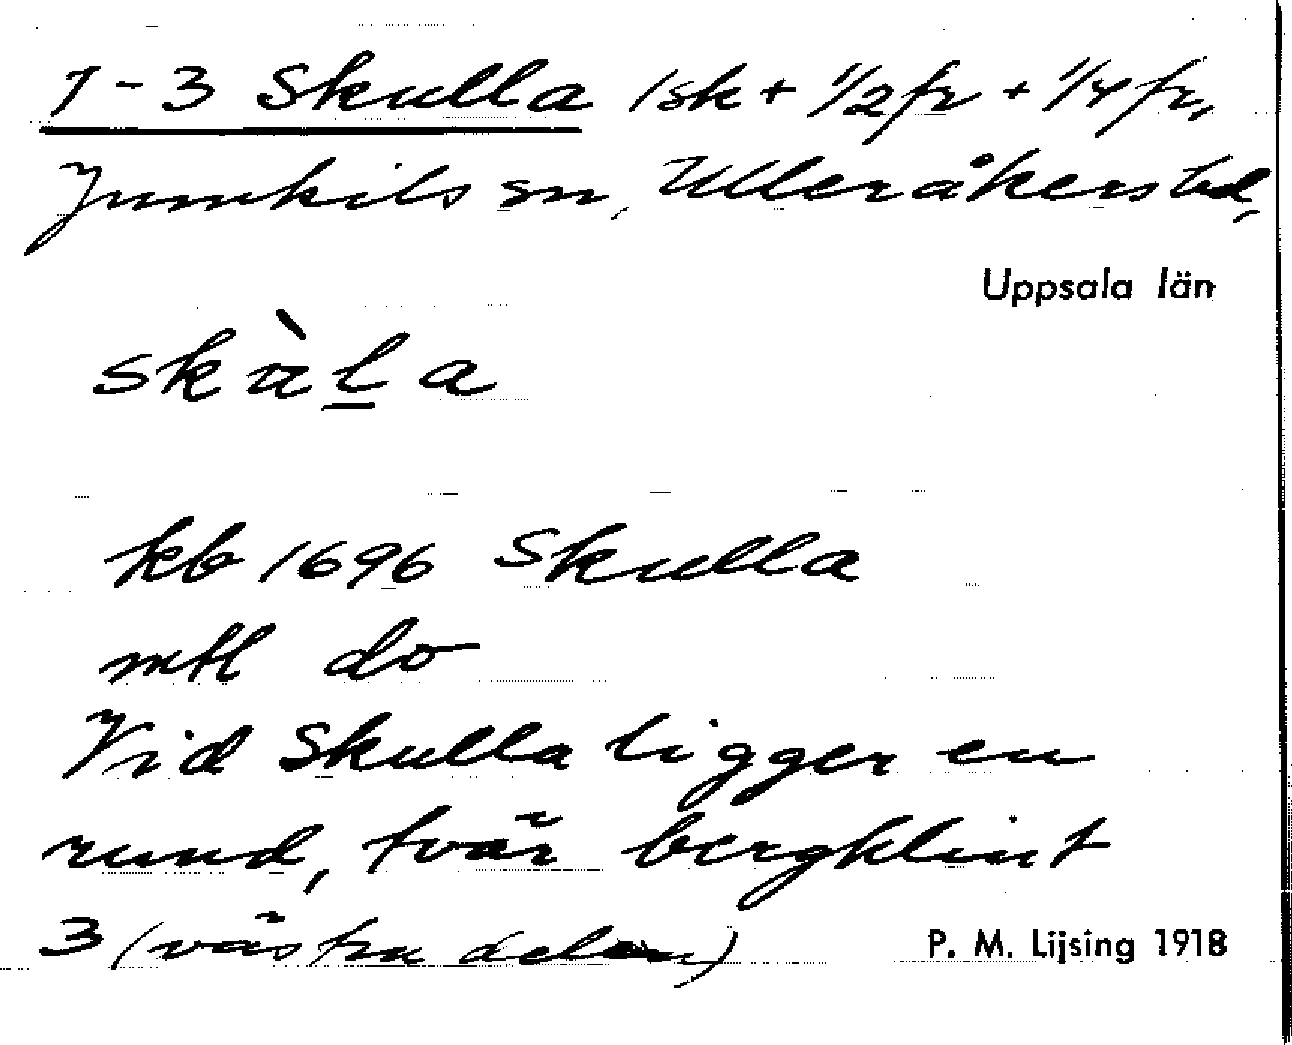 1-3 Skulla 1sk + 1/2fr + 1/4fr,
Jumkils sn, Ulleråkers hd,
Uppsala län
skàl̲a
kb 1696 Skulla
mtl do
Vid Skulla ligger en
rund, tvär bergklint
3 (västra delen)
P. M. Lijsing 1918